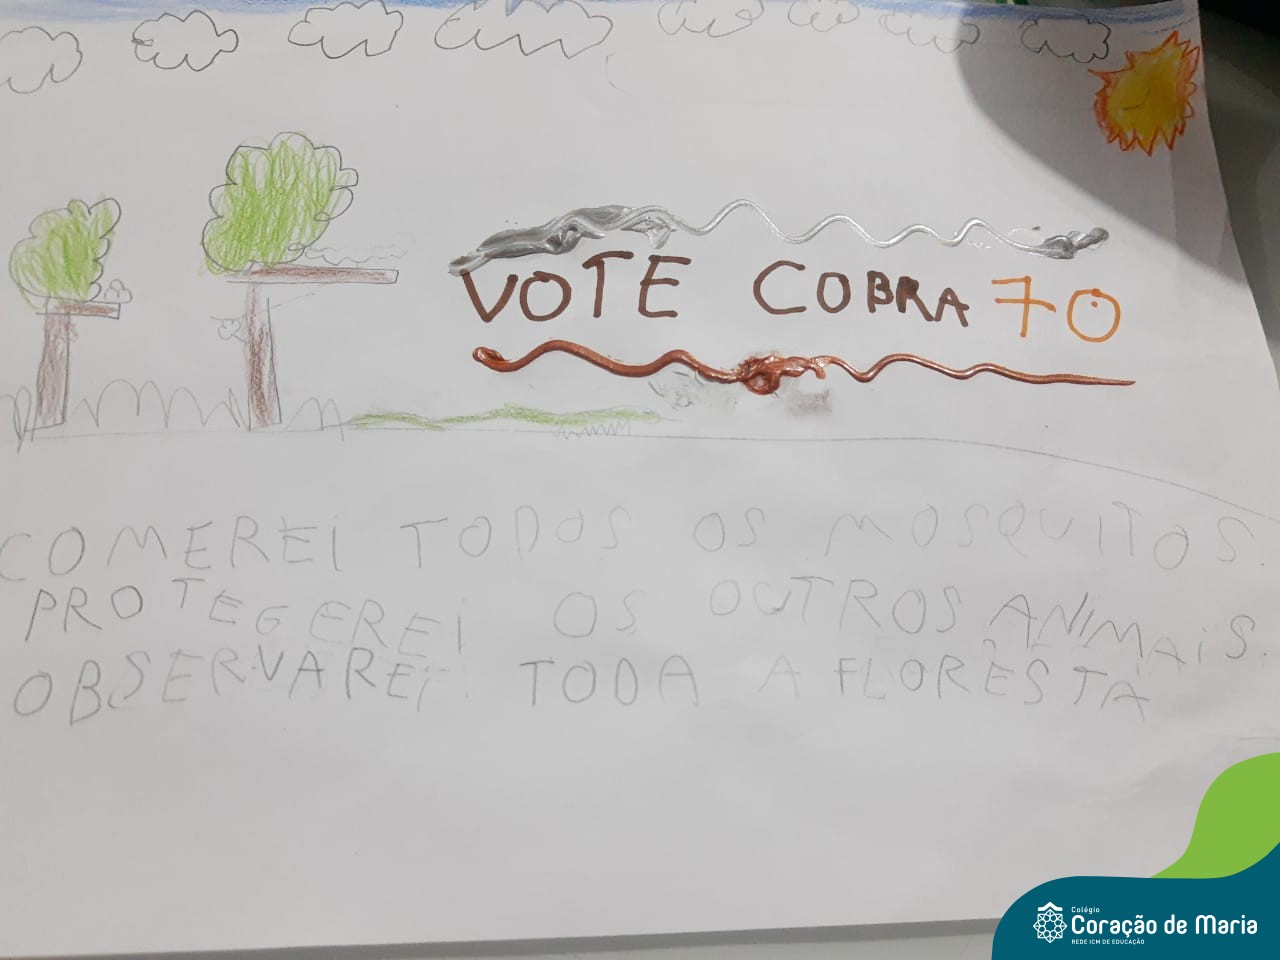 VOTE COBRA 70
COMEREI TODOS OS MOSQUITOS.
PROTEGEREI OS OUTROS ANIMAIS.
OBSERVAREI TODA A FLORESTA
Colégio
Coração de Maria
REDE ICM DE EDUCAÇÃO